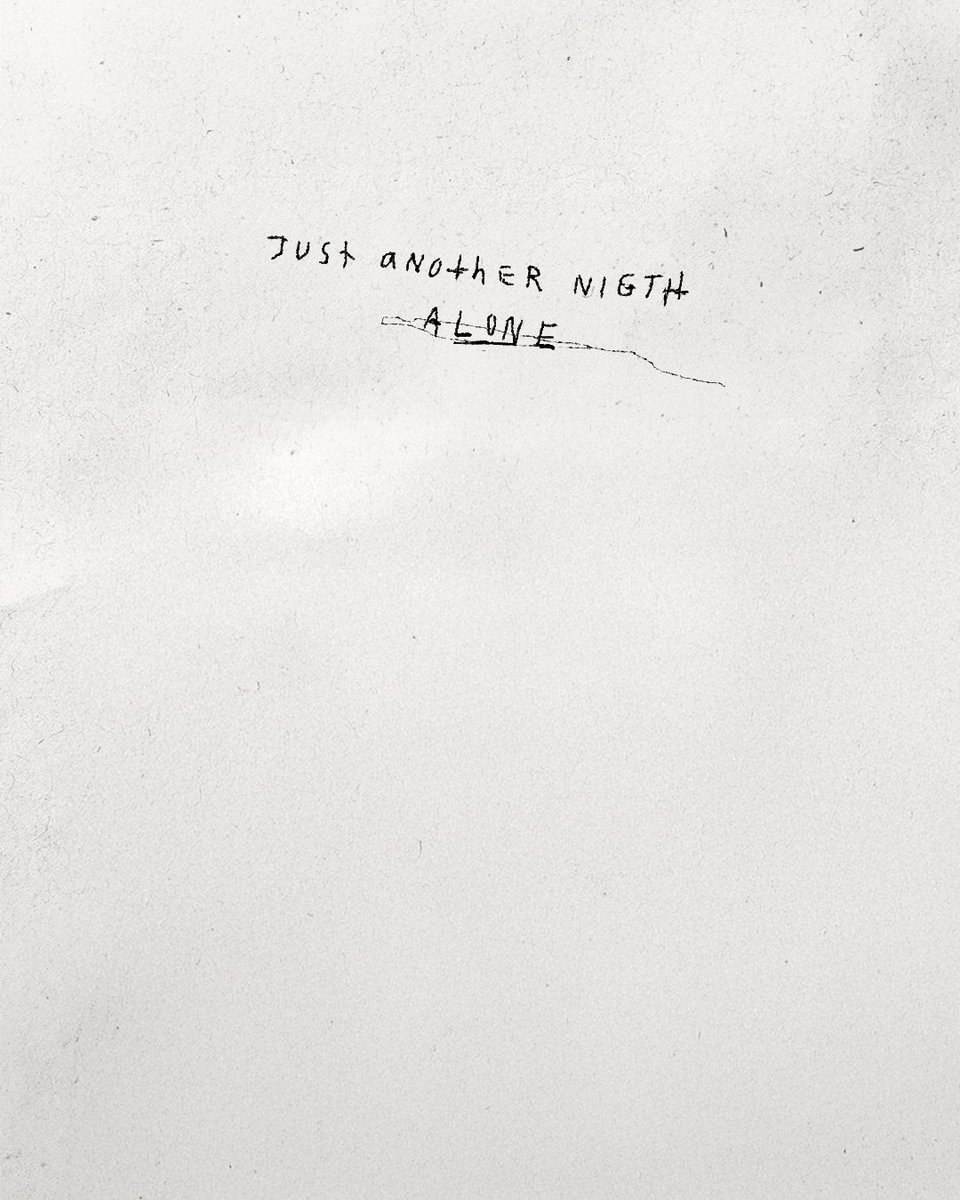 JUSt aNOthER NIGTH
ALONE